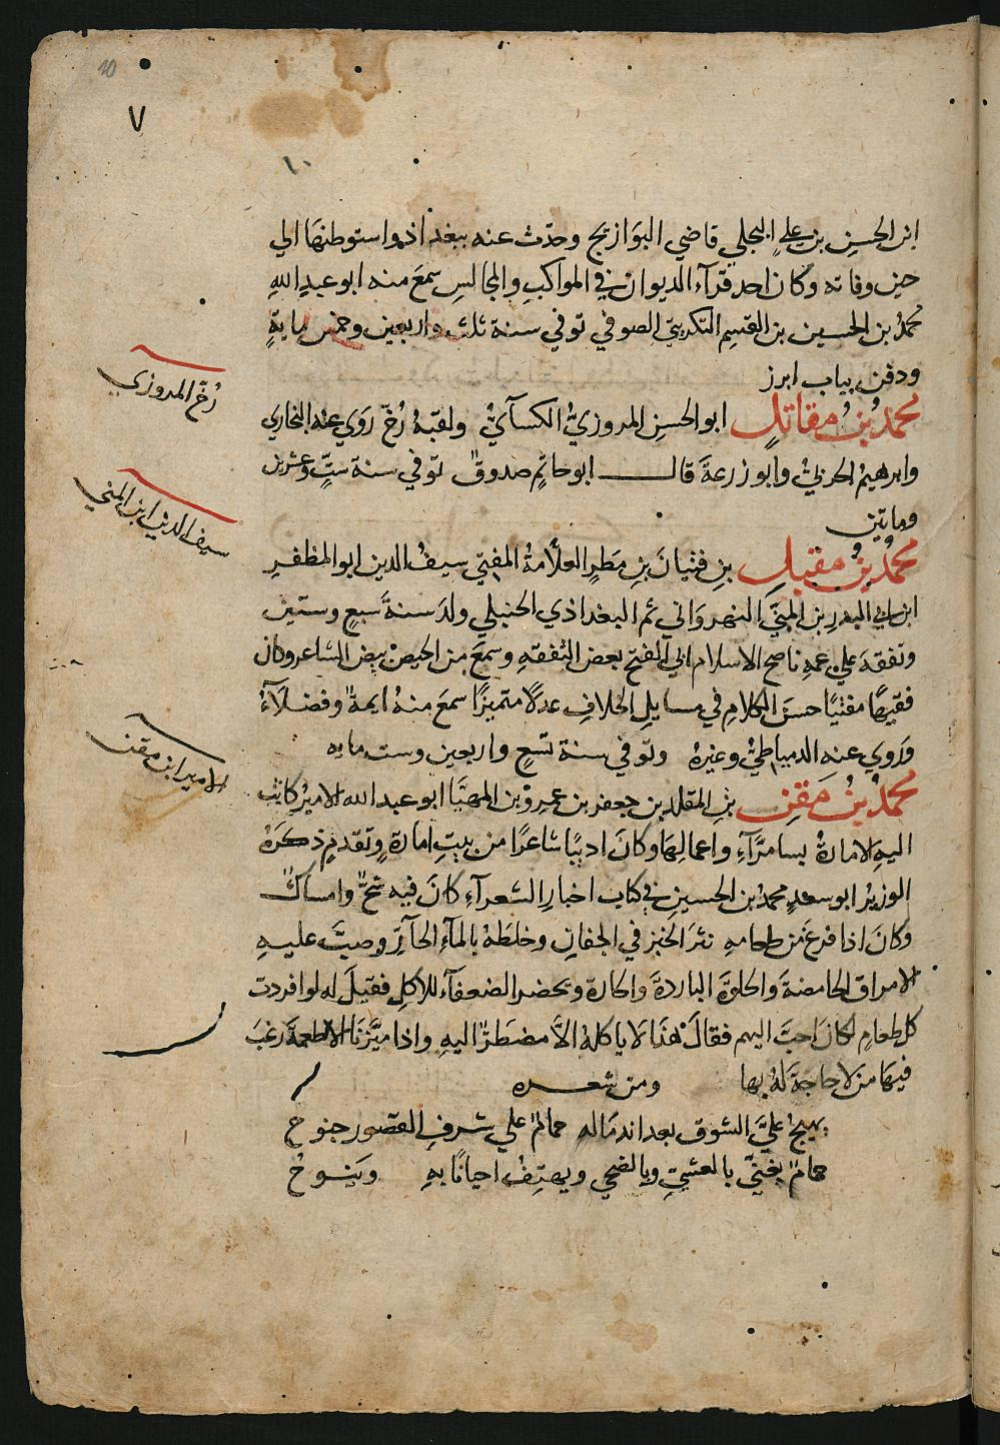 10
٧
١٠
ابن الحسن بن علي البجلي قاضي البوازيج وحدّث عنه ببغداذ واستوطنها الي
حين وفاته وكان احد قرآء الديوان في المواكب والمجالس سمع منه ابو عبد الله
محمد بن الحسين بن القسم التكريتي الصوفي توفي سنة ثلث واربعين وخمس ماية
ودفن بباب ابرز
محمد بن مقاتل ابو الحسن المروزيُّ الكسآيُّ ولقبهُ رُخّ روي عنه البخاري
وابرهيم الحربيُّ وابو زرعة قال ابو حاتم صدوق توفي سنة ستٍّ وعشرين
وماتين
محمد بن مقبل بن فتيان بن مطر العلّامة المفتي سيف الدين ابو المظفر
ابن ابي البدر بن المنيّ النهرواني ثم البغداذي الحنبلي ولد سنة سبع وستين
وتفقه علي عمه ناصح الاسلام ابي الفتح بعض التفقه وسمع من الحيص بيص الشاعر وكان
فقيهًا مفتيًا حسن الكلام في مسايل الخلاف عدلًا متميزًا سمع منه ايمة وفضلآءُ
وروي عنه الدمياطيُّ وغيره وتوفي سنة تسع واربعين وست مايه
محمد بن مقن بن المقلد بن جعفر بن عمرو بن المهيّا ابو عبد الله الامير كانت
اليه الامارة بسامرّآء واعمالها وكان اديبًا شاعرًا من بيت امارة وتقدم ذكره
الوزير ابو سعد محمد بن الحسين في كتاب اخبار الشعرآء كان فيه شحّ وامساك
وكان اذا فرغ من طعامه نثر الخبز في الجفان وخلطه بالمآء الحآرّ وصبّ عليه
الامراق الحامضة والحلوة الباردة والحارة ويحضر الضعفآء للاكل فقيل له لو افردت
كل طعام لكان احبّ اليهم فقال هذا لا ياكله الاّ مضطرّ اليه واذا ميّزنا الاطعمة رغب
فيها من لا حاجة له بها ومن شعره
يهيج عليّ الشوق بعد اندماله حمامٌ علي شرف القصور جنوح
حمامٌ يغنيّ بالعشيّ وبالضحي ويهتف احيانًا به وينوحُ
رُخّ المروزي
سيف الدين ابن المني
الامير ابن مقن